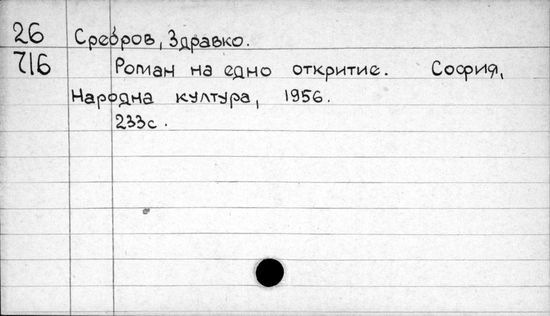 26 Сребров, Здравко.
716 Роман на едно откритие. София,
Народна култура, 1956.
233с.